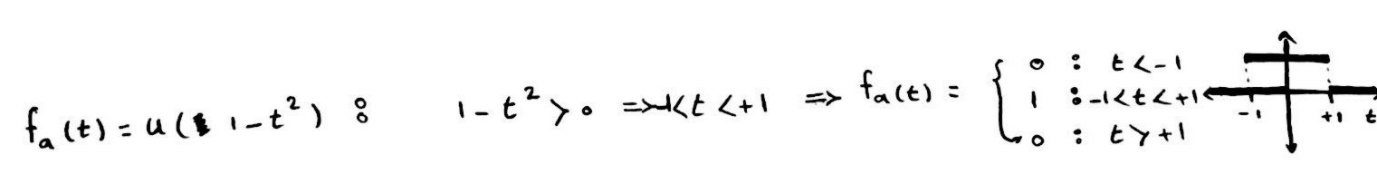 fₐ(t) = u(1-t²) : 1-t² > 0 => -1<t<+1 => fₐ(t) = { 0 : t<-1
1 : -1<t<+1
0 : t>+1
-1 +1 t